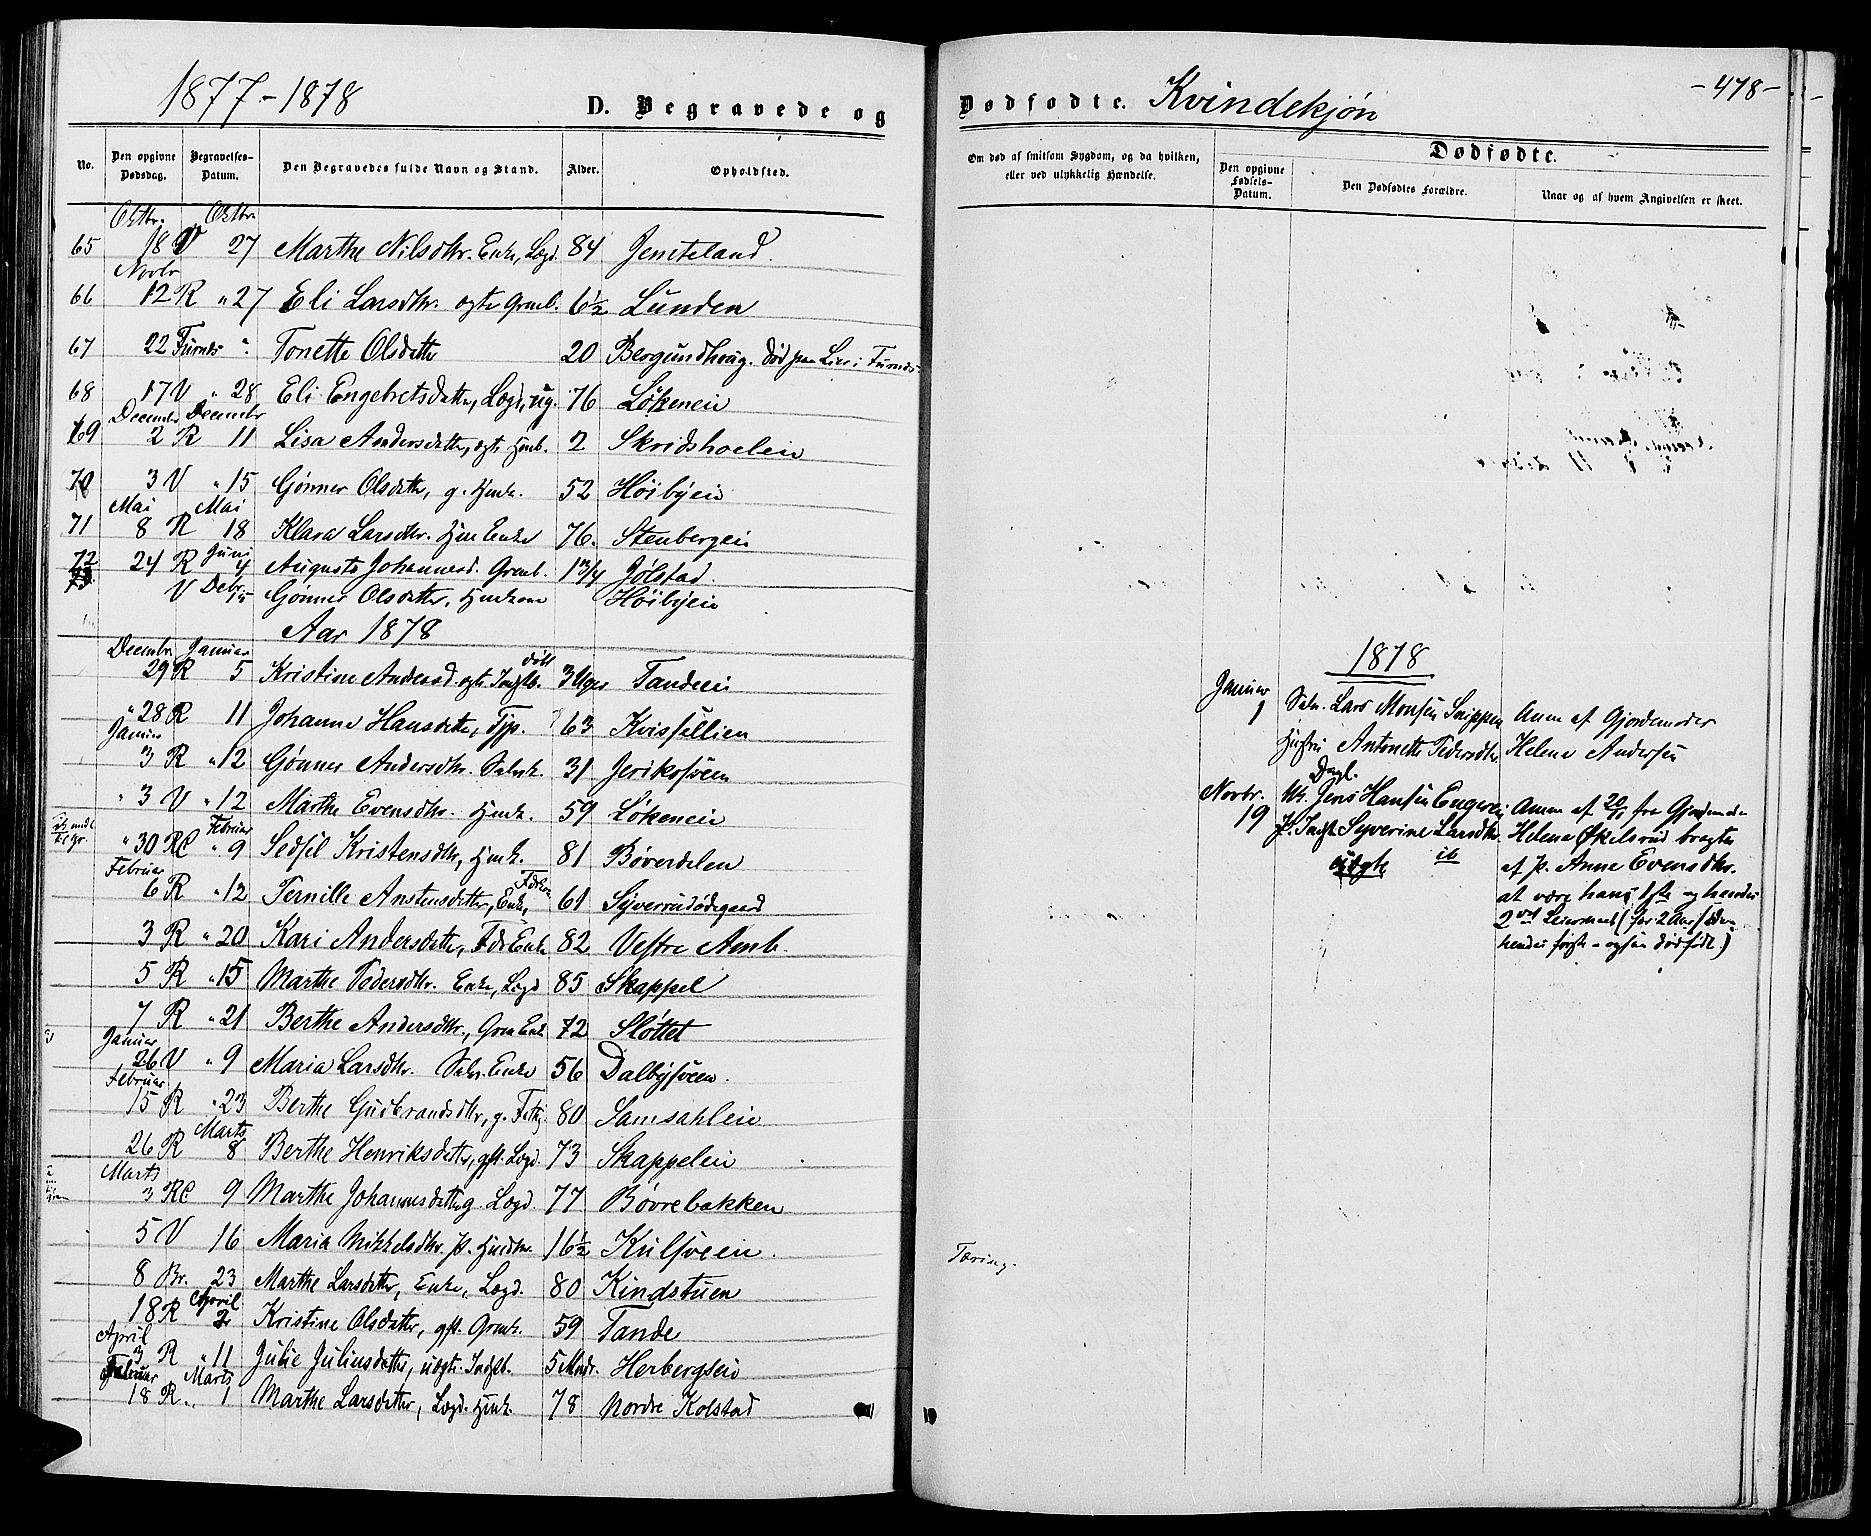 1877-1878
D. Begravede og
No.
Den opgivne Dødsdag.
Begravelses-Datum.
Den Begravedes fulde Navn og Stand.
Alder.
Opholdsted.
Oktbr. Oktbr.
65 18 V 27 Marthe Nilsdtr. Enke, Lægd. 84 Jemteland.
Novbr
66 12 R " 27 Eli Larsdtr. ægte 6½ Lunden
67 22 Furnes " Tonette Olsdatter 20 Bergundhaug. død paa Lier i Furnes
68 17 V " 28 Eli Engebretsdatter, Lægd, ug. 76 Løkeneie
December December
69 2 R 11 Lisa Andersdatter, ægte 2 Skridsholeie
70 3 V " 15 Gønner Olsdatter, g. Husk. 52 Høibyeie
Mai Mai
71 8 R 18 Klara Larsdtr. Hus Enke 76. Stenbergeie
Juni
72 24 R 4 Augusta Johannesd. Grmb. 1 Jølstad.
V Debr 15 Gønner Olsdatter, Huskone Høibyeie
Aar 1878
Decembr. Januar
29 R 5 Kristine Andersd. ægte døbt 3 Uger Tandeeie
" 28 R 11 Johanne Hansdatter, Tjp. 63 Kvisfellien
Januar
3 R " 12 Gønner Andersdtr. Selvk. 31 Jeriksveen
" 3 V " 12 Marthe Evensdtr. Husk. 59 Løkeneie
Februar
" 30 RC " 9 Sedsel Kristensdtr, Husk. 81 Bøverdalen
Februar
6 R " 12 Pernille Anstensdatter, Enke, 61 Syverudødegaard
3 R " 20 Kari Andersdatter, Fdr. Enke 82 Vestre Amb.
5 R " 15 Marthe Pedersdtr. Enke, Lægd 85 Skappel
7 R " 21 Berthe Andersdtr., Grm Enk 72 Slottet
Januar
26 V " 9 Maria Larsdtr. Selv. Enke 56 Dalbysveen.
Februar
15 R " 23 Berthe Gudbrandsdtr, g. 80 Samsahleie
Marts
26 R 8 Berthe Henriksdatter, gft. Lægd. 73 Skappeleie
Marts
3 RC 9 Marthe Johannesdatter g. Lægd. 77 Bøvrebakken
5 V 16 Maria Mikkelsdtr. P. 16½ Kulsveen.
8 Br. 23 Marthe Larsdatter, Enke, Lægd. 80 Kindstuen
April
18 R 2 Kristine Olsdatter, gft. Grmk. 59 Tande
April
3 R " 11 Julie Juliusdatter, uægte 5 Mndr. Herbergseie
Februar Marts
18 R " 1 Marthe Larsdatter, Lægd. Husk. 78 Nordre Kolstad
Dødfødte. Kvindekjøn
-478-
Om død af smitsom Sygdom, og da hvilken, eller ved ulykkelig Hændelse.
Dødfødte.
Den opgivne Fødsels-Datum.
Den Dødfødtes Forældre.
Naar og af hvem Angivelsen er skeet.
1878
Januar 1 Selv. Lars Monsen Snippen Anm af Gjordemoder
Hustru Antonette Pedersdtr. Helene Andersen
Dagl.
Novbr. 19 Uk. Jens Hansen Engeeie Anm af 20/11 fra Gjordemder
P. Indst. Syverine Larsdtr. ib Helene Økelsrud bragte
uægte af P. Anne Evensdtr.
at være hans 1ste og hendes
2det Leiermaal (for 2 Aar siden
hendes første - ogsaa dødfødt.)
Tæring.